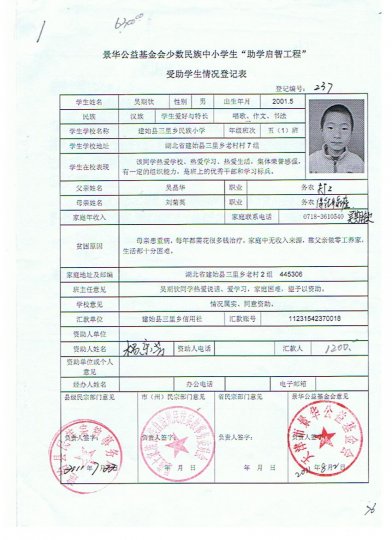 景华公益基金会少数民族中小学生“助学启智工程”
受助学生情况登记表
登记编号: 237
学生姓名 吴期钦 性别 男 出生年月 2001.5
民族 汉族 学生爱好与特长 唱歌、作文、书法
学生学校名称 建始县三里乡民族小学 年级班次 五(1)班
学生学校地址 湖北省建始县三里乡老村村7组
学生在校表现 该同学热爱学校、热爱学习、热爱生活、集体荣誉感强,
有一定的组织能力,是班上的优秀干部和学习标兵。
父亲姓名 吴昌华 职业 务农
母亲姓名 刘菊英 职业 务农
家庭年收入 家庭联系电话 0718-3610540
贫困原因 母亲患重病,每年都需花很多钱治疗。家庭中无收入来源,靠父亲做零工养家,
生活都十分困难。
家庭地址及邮编 湖北省建始县三里乡老村2组 445306
班主任意见 吴期钦同学热爱说话、爱学习,家庭困难,望予以资助。
学校意见 情况属实,同意资助。
汇款单位 建始县三里乡信用社 汇款账号 11231542370018
资助人单位
资助人姓名 资助人电话 汇款人 1200.
资助单位或个人
意见
经办人姓名 办公电话 电子邮箱
县级民宗部门意见 市(州)民宗部门意见 省民宗部门意见 景华公益基金会意见
负责人签字: 负责人签字: 负责人签字: 负责人签字:
年 月 日 年 月 日 年 月 日